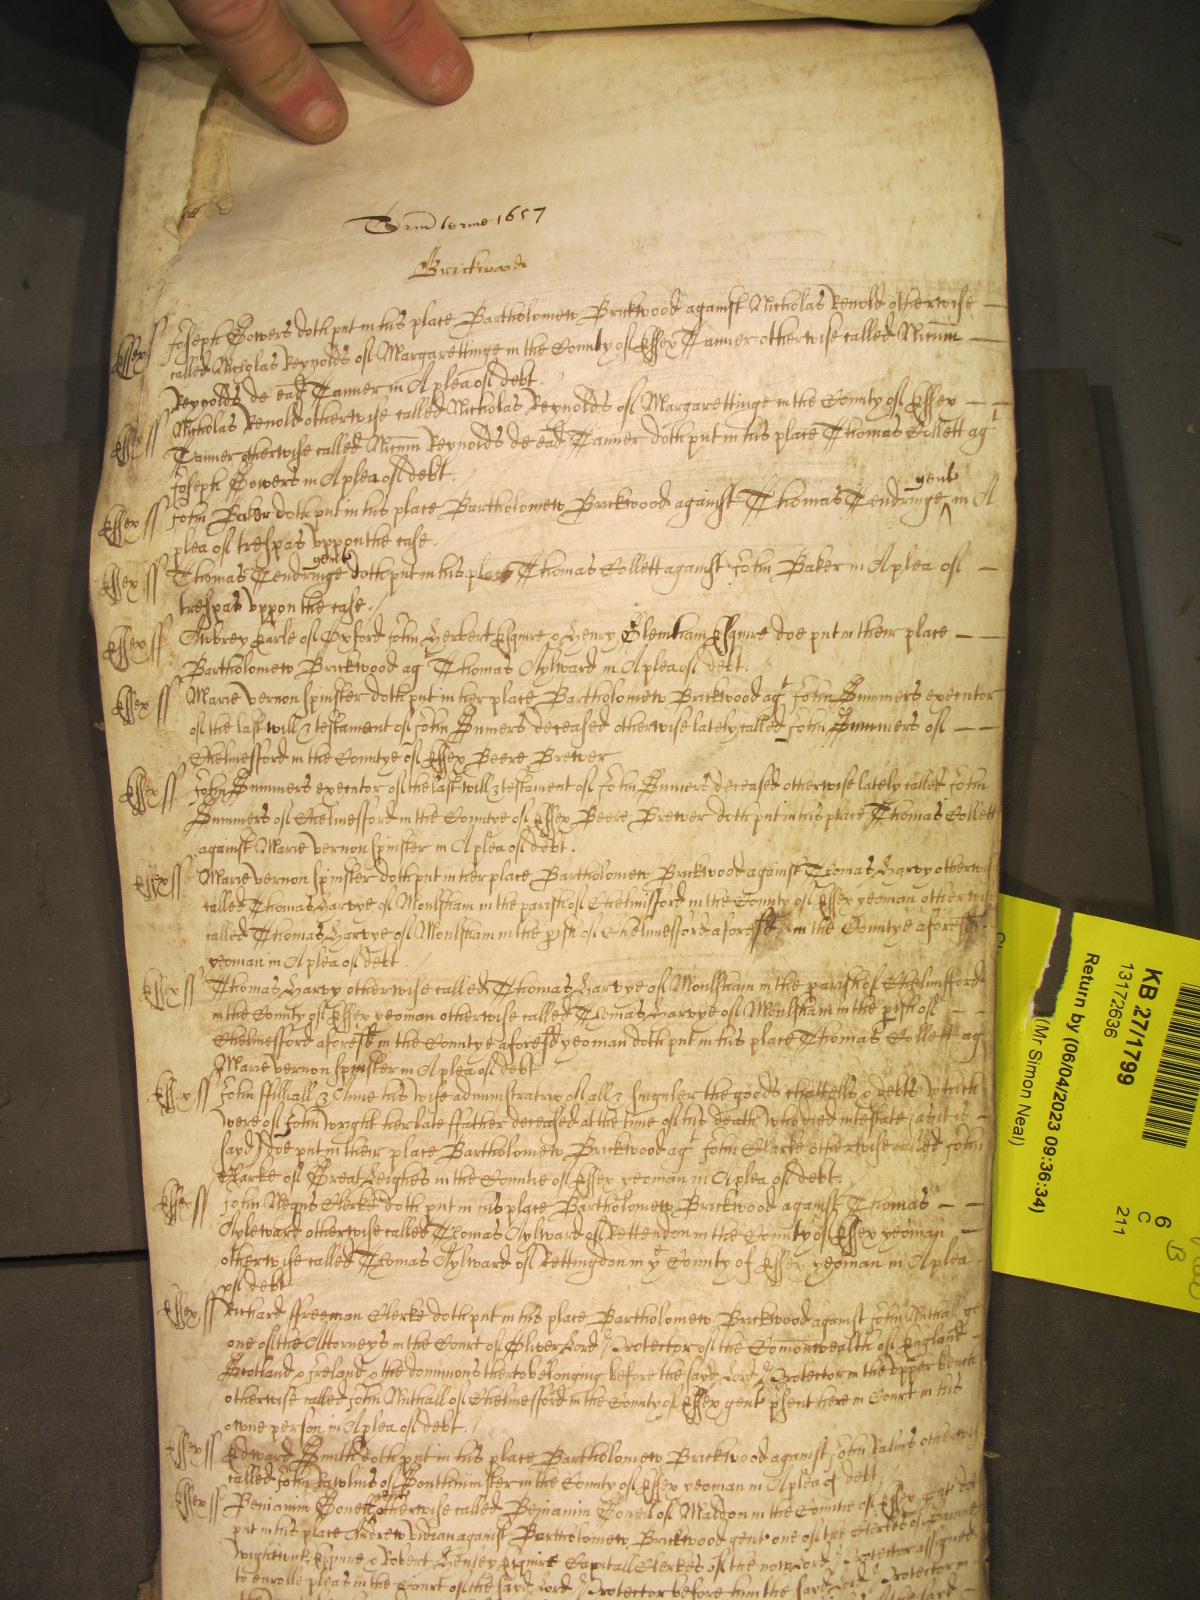 Trin terme 1657
Brickwood
Essex ss Joseph Bowers doth put in his place Bartholomew Brickwood against Nicholas Renold otherwise
called Nicholas Reynolds of Margarettinge in the County of Essex Tanner otherwise called
Reynolds de ead Tanner in A plea of debt.
Essex ss Nicholas Renold otherwise called Nicholas Reynolds of Margarettinge in the County of Essex
Tanner otherwise called Reynolds de ead Tanner doth put in his place Thomas Collett agt
Joseph Bowers in A plea of debt.
Essex ss John Baker doth put in his place Bartholomew Brickwood against Thomas Tendringe gent in A
plea of trespas uppon the case.
Essex ss Thomas Tendringe gent doth put in his place Thomas Collett against John Baker in A plea of
trespas uppon the case.
Essex ss Aubrey Earle of Oxford John Herbert Esquire & Henry Glemham Esquire doe put in their place
Bartholomew Brickwood agt Thomas Aylward in A plea of debt.
Essex ss Marie Vernon Spinster doth put in her place Bartholomew Brickwood agt John Summers executor
of the last will & testament of John Summers deceased otherwise lately called John Summers of
Chelmesford in the Countye of Essex Beere Brewer
Essex ss John Summers executor of the last will & testament of John Summers deceased otherwise lately called John
Summers of Chelmesford in the Countye of Essex Beere Brewer doth put in his place Thomas Collett
against Marie Vernon Spinster in A plea of debt.
Essex ss Marie Vernon Spinster doth put in her place Bartholomew Brickwood against Thomas Harvy otherwise
called Thomas Harvye of Moulsham in the parish of Chelmisford in the County of Essex yeoman otherwise
called Thomas Harvye of Moulsham in the pish of Chelmesford aforesd in the Countye aforesd
yeoman in A plea of debt.
Essex ss Thomas Harvy otherwise called Thomas Harvye of Moulsham in the parish of Chelmisford
in the County of Essex yeoman otherwise called Thomas Harvye of Moulsham in the pish of
Chelmesford aforesd in the Countye aforesd yeoman doth put in his place Thomas Collett ag
Marie Vernon Spinster in A plea of debt.
Essex ss John & Anne his wife administratrix of all & singuler the goods chattells & debts which
were of John Wright her late ffather deceased at the time of his death who died intestate as it is
sayd doe put in their place Bartholomew Brickwood agt John Clarke otherwise called John
Clarke of Great Leighes in the Countie of Essex yeoman in A plea of debt.
Essex ss John Negus Clerke doth put in his place Bartholomew Brickwood against Thomas
Ayleward otherwise called Thomas Aylward of Rettendon in the County of Essex yeoman
otherwise called Thomas Aylward of Rettingdon in ye County of Essex yeoman in A plea
of debt
Essex ss Richard ffreeman Clerke doth put in his place Bartholomew Brickwood against John Nuthall ge
one of the Attorneys in the Court of Oliver Lord Protector of the Comonwealth of England
Scotland & Ireland & the dominions thereto belonging before the sayd Lord Protector in the upper bench
otherwise called John Nuthall of Chelmesford in the County of Essex gent psent here in Court in his
owne person in A plea of debt.
Essex ss Edward Smith doth put in his place Bartholomew Brickwood against John otherwise
called John of Southminster in the County of Essex yeoman in A plea of debt.
Essex ss Beniamin otherwise called Beniamin of Maldon in the Countie of Essex
put in his place Andrew against Bartholomew Brickwood gent one of the Clerkes of
Wightwick Esquire & Robert Henley Esquire Capitall Clerkes of the now Lord Protector assigned
to enrolle pleas in the Court of the sayd Lord Protector before him the sayd Lord Protector in
KB 27/1799
13172636
Return by (06/04/2023 09:36:34)
(Mr Simon Neal)
6
C
211